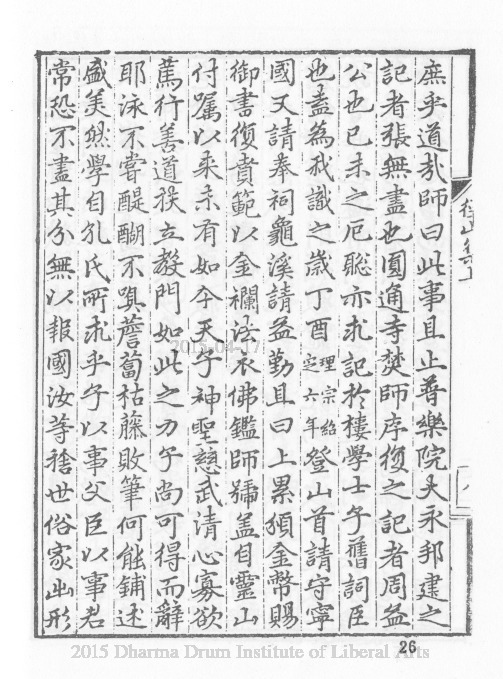 庶乎道哉師曰此事且止普樂院大永邦建之
記者張無盡也圓通寺焚師序復之記者周益
公也已未之厄聡亦求記於樓學士子舊詞臣
也盍為我識之歲丁酉理宗紹定六年登山首請守寧
國又請奉祠龜溪請益勤且曰上累頒金幣賜
御書復賁範以金襴法衣佛鑑師號盖自靈山
付屬以来未有如今天子神聖慈武清心寡欲
篤行善道扶立教門如此之力子尚可得而辭
耶泳不嘗醍醐不齅薝蔔枯藤敗筆何能鋪述
盛美然學自孔氏所求乎子以事父臣以事君
常恐不盡其分無以報國汝等捨世俗家出形
徑山集上
八
26
2015-04-17
2015 Dharma Drum Institute of Liberal Arts